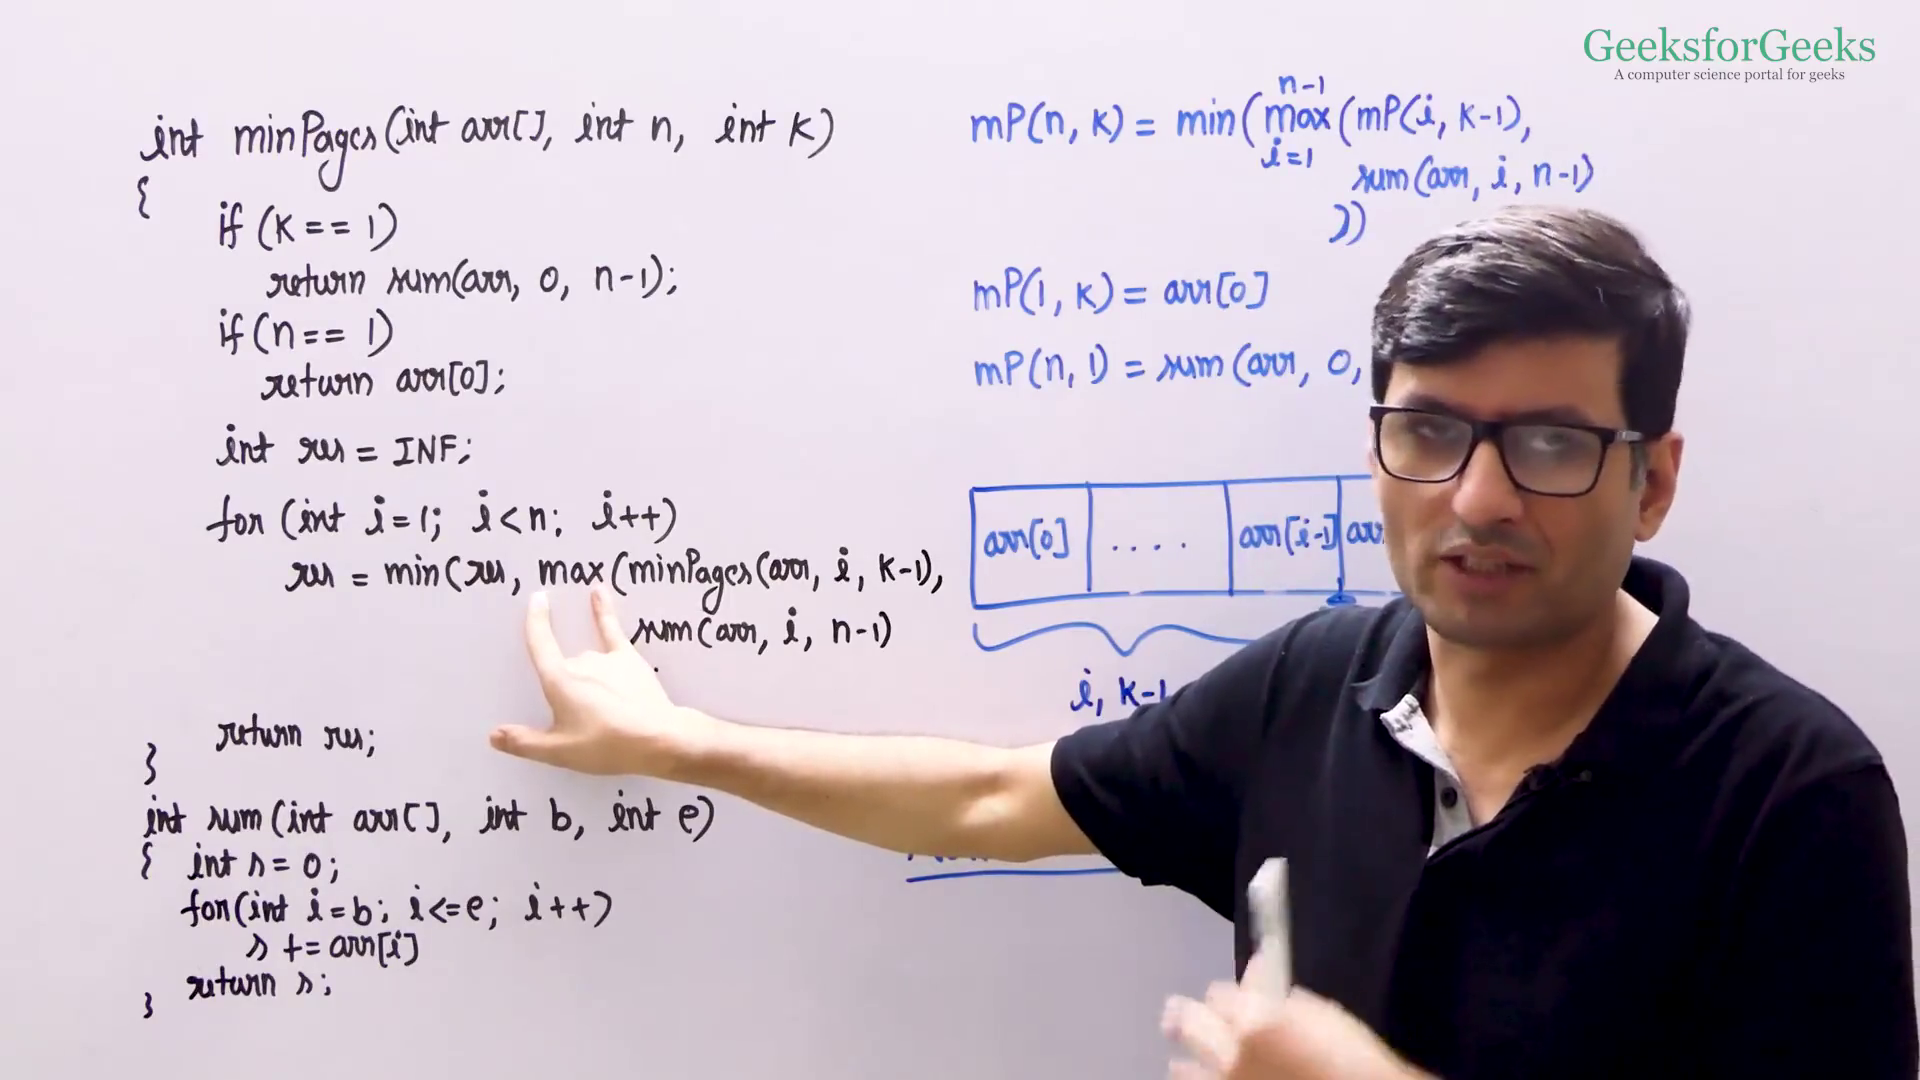 GeeksforGeeks
A computer science portal for geeks
int minPages(int arr[], int n, int k)
{
if (k == 1)
return sum(arr, 0, n-1);
if (n == 1)
return arr[0];
int res = INF;
for (int i=1; i<n; i++)
res = min(res, max(minPages(arr, i, k-1),
sum(arr, i, n-1)
return res;
}
int sum(int arr[], int b, int e)
{ int s = 0;
for(int i=b; i<=e; i++)
s += arr[i]
return s;
}
n-1
mP(n, k) = min(max(mP(i, k-1),
i=1
sum(arr, i, n-1)
))
mP(1, k) = arr[0]
mP(n, 1) = sum(arr, 0,
arr[0] .... arr[i-1] arr
i, k-1